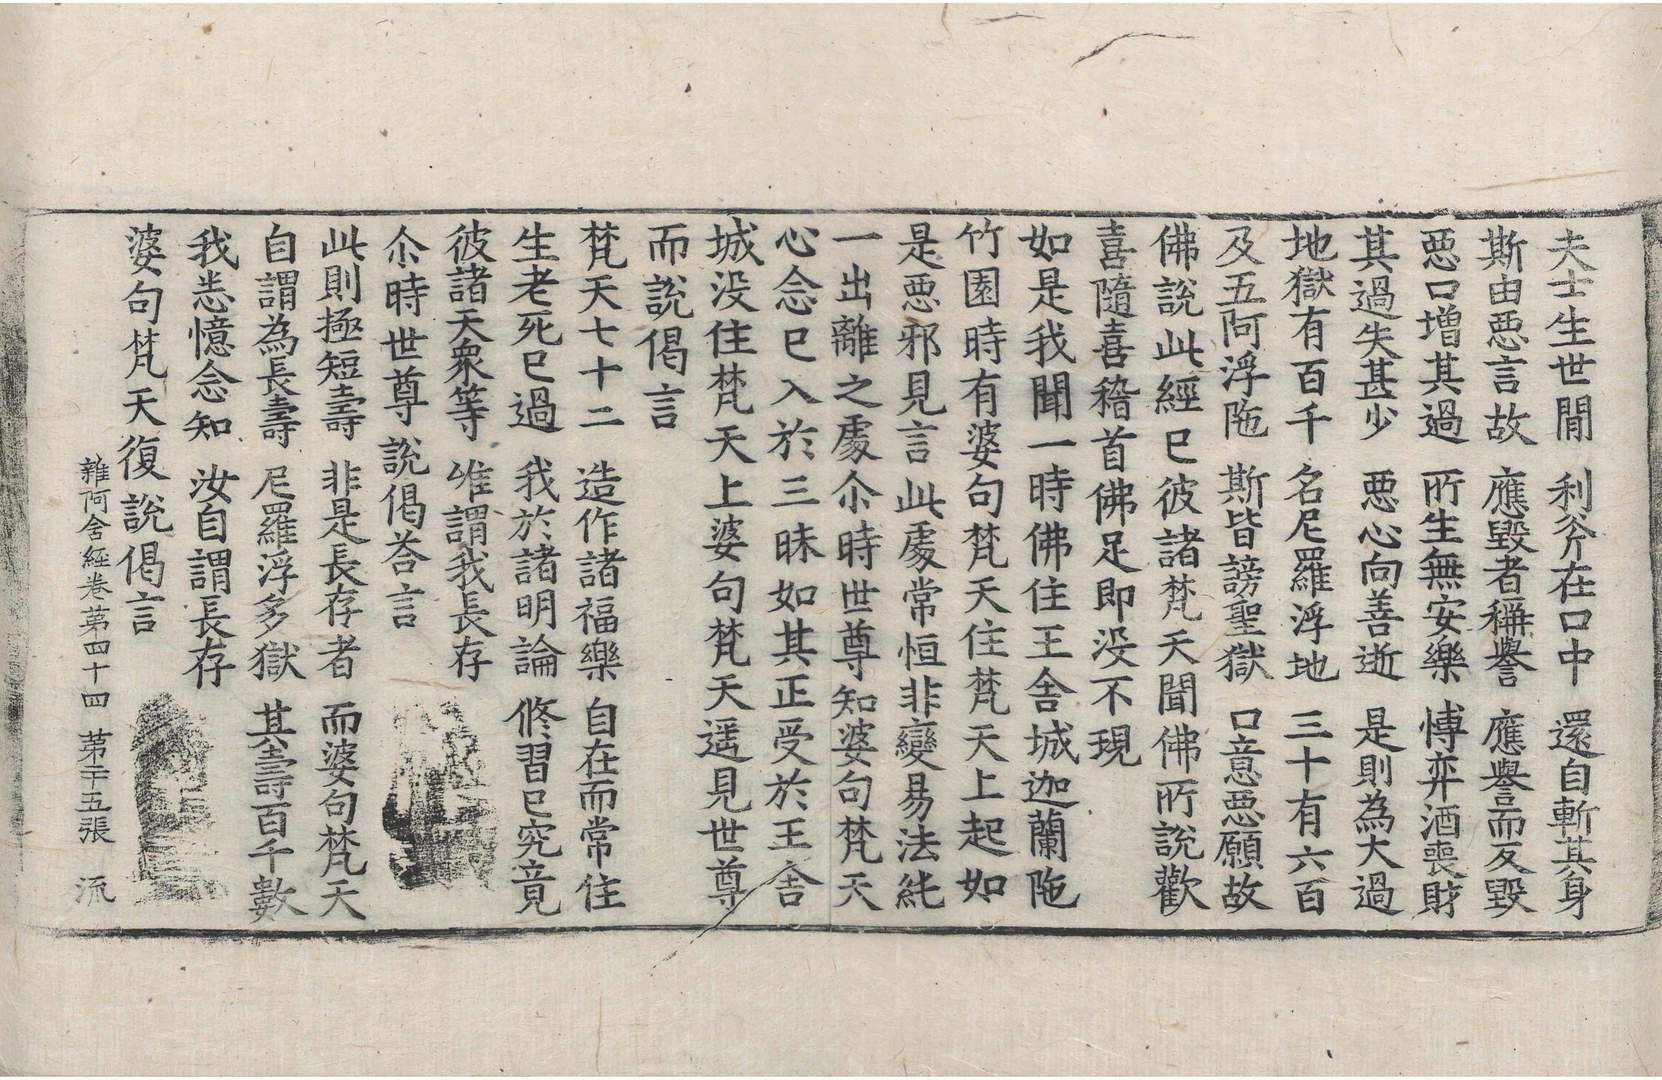 夫士生世間 利斧在口中 還自斬其身
斯由惡言故 應毀者稱譽 應譽而反毀
惡口增其過 所生無安樂 博弈酒喪財
其過失甚少 惡心向善逝 是則為大過
地獄有百千 名尼羅浮地 三十有六百
及五阿浮陁 斯皆謗聖獄 口意惡願故
佛說此經已彼諸梵天聞佛所說歡
喜隨喜稽首佛足即没不現
如是我聞一時佛住王舍城迦蘭陁
竹園時有婆句梵天住梵天上起如
是惡邪見言此處常恒非變易法純
一出離之處尒時世尊知婆句梵天
心念已入於三昧如其正受於王舍
城没住梵天上婆句梵天遥見世尊
而說偈言
梵天七十二 造作諸福樂 自在而常住
生老死已過 我於諸明論 修習已究竟
彼諸天衆等 唯謂我長存
尒時世尊說偈荅言
此則極短壽 非是長存者 而婆句梵天
自謂為長壽 尼羅浮多獄 其壽百千數
我悉憶念知 汝自謂長存
婆句梵天復說偈言
雜阿含經卷第四十四 第二十五張 流